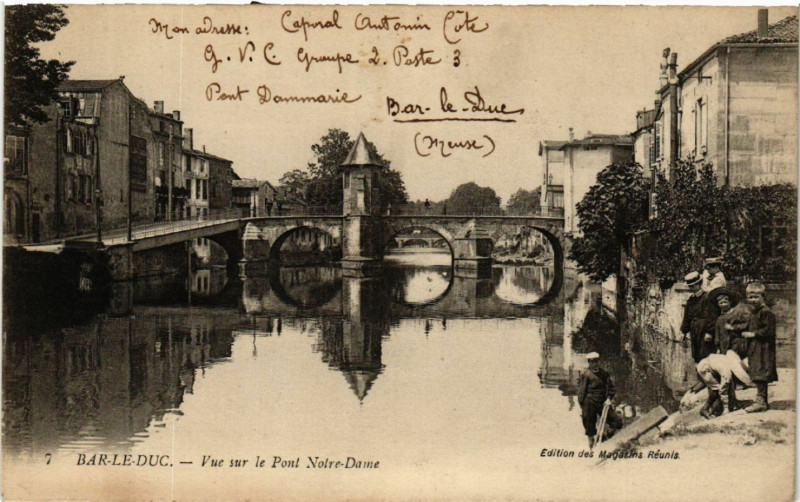 Mon adresse: Caporal Antonin Côte
G. V. C. Groupe 2. Poste 3
Pont Dammarie Bar-le-Duc
(Meuse)
7 BAR-LE-DUC. — Vue sur le Pont Notre-Dame
Edition des Magasins Réunis.